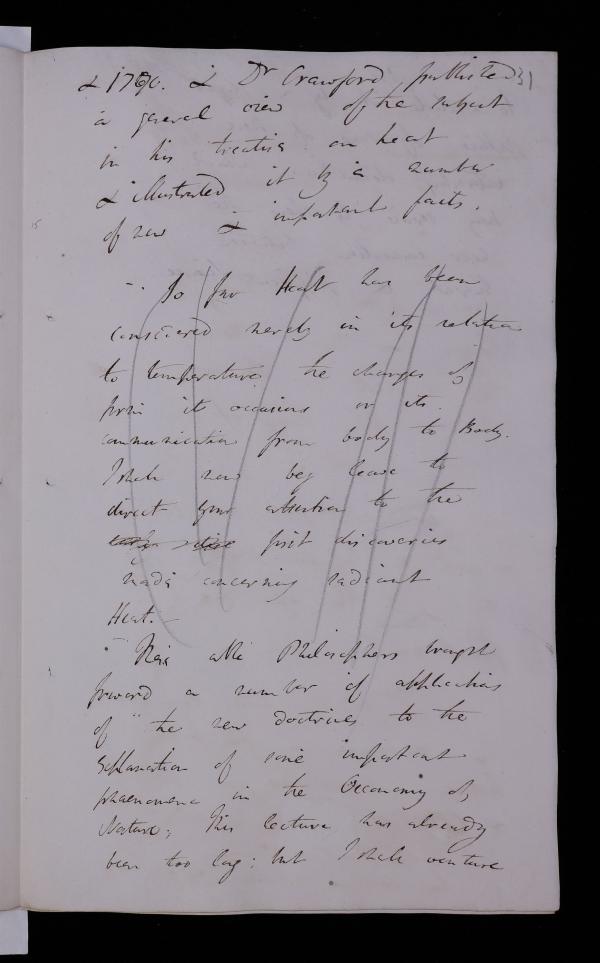 & 1790. & Dr Crawford published 31
a general view of the subject
in his treatise on heat
& illustrated it by a number
of new & important facts.
So far Heat has been
considered merely in its relation
to temperature the changes of
form it occasions or its
communication from body to Body.
I shall now beg leave to
direct your attention to the
first discoveries
made concerning radiant
Heat.-
These able Philosophers brought
forward a number of applications
of the new doctrines to the
explanation of some important
phaenomena in the Oeconomy of
Nature; This lecture has already
been too long: but I shall venture